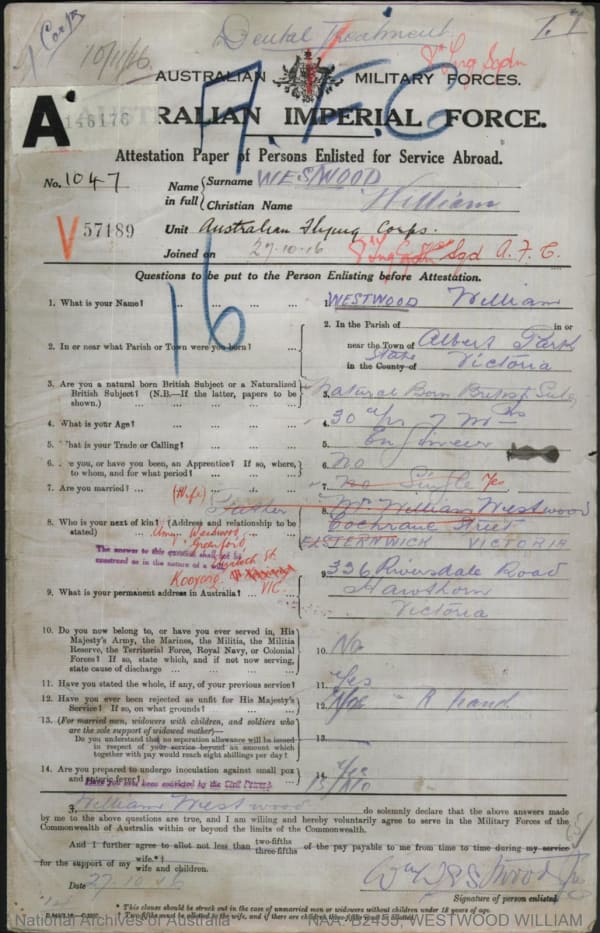 Dental Treatment
10/11/16
AUSTRALIAN MILITARY FORCES.
A 146176
AUSTRALIAN IMPERIAL FORCE.
A.F.C
Attestation Paper of Persons Enlisted for Service Abroad.
No. 1047
Name in full { Surname WESTWOOD
Christian Name William
V 57189
Unit Australian Flying Corps.
Joined on 27-10-16 Sqd A. F. C.
Questions to be put to the Person Enlisting before Attestation.
16
1. What is your Name? ... ... ... ... WESTWOOD William
2. In or near what Parish or Town were you born? ...
2. In the Parish of in or
near the Town of Albert Park
in the County of State Victoria
3. Are you a natural born British Subject or a Naturalized British Subject? (N.B.—If the latter, papers to be shown.)
3. Natural Born British Subj
4. What is your Age? ... ... ... ...
4. 30 yrs 7 mths
5. What is your Trade or Calling? ... ... ...
5. Engineer
6. Are you, or have you been, an Apprentice? If so, where, to whom, and for what period? ... ...
6. No
7. Are you married? ... ... ...
7. No Single Yes
8. Who is your next of kin? (Address and relationship to be stated) ...
(Wife)
Father
8. Mr William Westwood
Cochrane Street
ELSTERNWICK VICTORIA
Westwood
The answer to this question shall not be
construed as in the nature of a
St.
Kooyong
VIC.
9. What is your permanent address in Australia? ...
9. 336 Riversdale Road
Hawthorn
Victoria
10. Do you now belong to, or have you ever served in, His Majesty's Army, the Marines, the Militia, the Militia Reserve, the Territorial Force, Royal Navy, or Colonial Forces? If so, state which, and if not now serving, state cause of discharge ... ...
10. No
11. Have you stated the whole, if any, of your previous service?
11. Yes
12. Have you ever been rejected as unfit for His Majesty's Service? If so, on what grounds? ... ...
12. Yes - R hand
13. (For married men, widowers with children, and soldiers who are the sole support of widowed mother)—
Do you understand that no separation allowance will be issued in respect of your service beyond an amount which together with pay would reach eight shillings per day?
13.
14. Are you prepared to undergo inoculation against small pox and enteric fever?
14. Yes
15 No
Have you been convicted by the Civil Power?
I, William Westwood do solemnly declare that the above answers made
by me to the above questions are true, and I am willing and hereby voluntarily agree to serve in the Military Forces of the
Commonwealth of Australia within or beyond the limits of the Commonwealth.
And I further agree to allot not less than two-fifths three-fifths of the pay payable to me from time to time during my service
for the support of my wife.* wife and children.
Date 27-10-16
Wm Westwood Jnr
Signature of person enlisted.
* This clause should be struck out in the case of unmarried men or widowers without children under 18 years of age.
† Two-fifths must be allotted to the wife, and if there are children three-fifths must be allotted.
National Archives of Australia
NAA: B2455, WESTWOOD WILLIAM